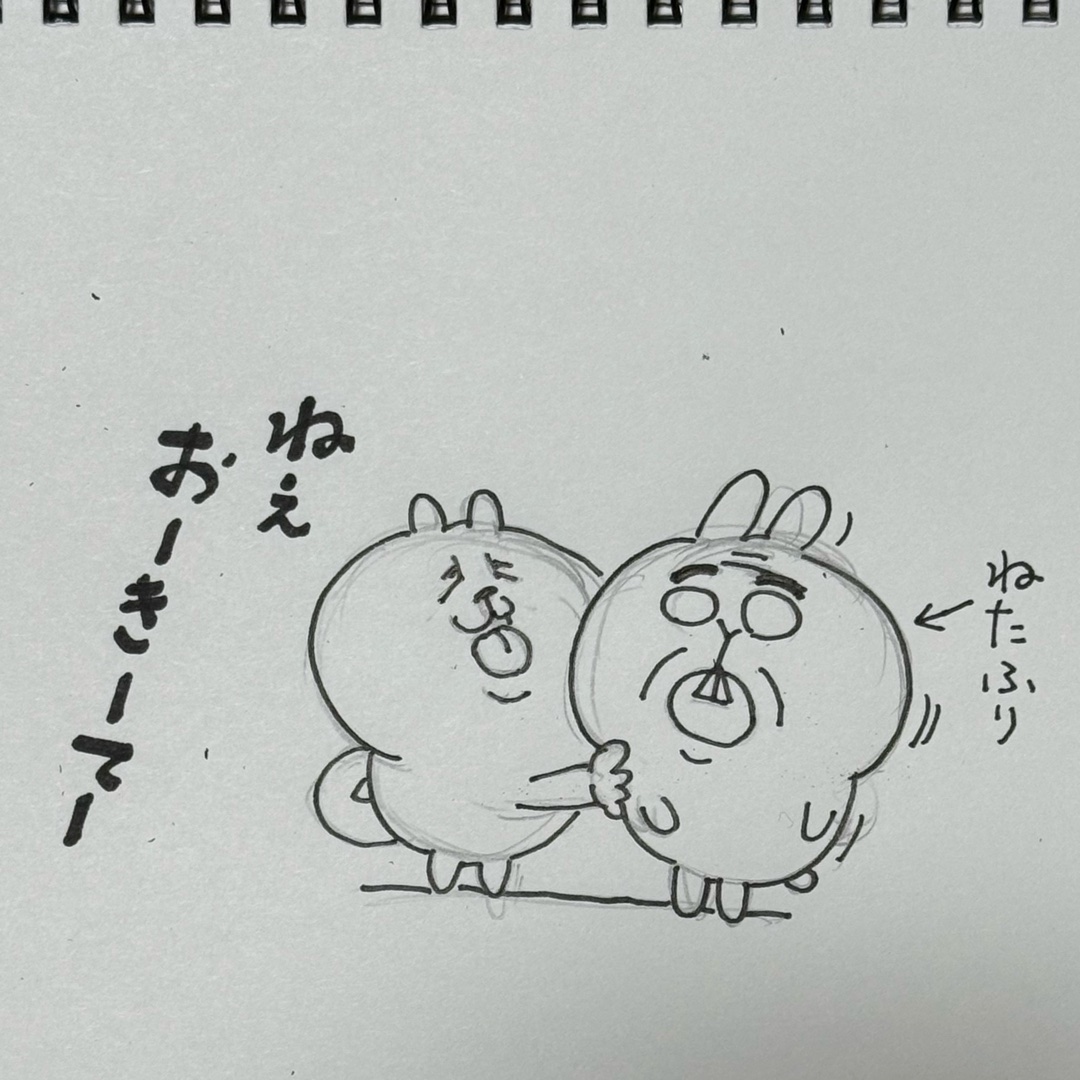 ねたふり
ねぇ
おーきーてー